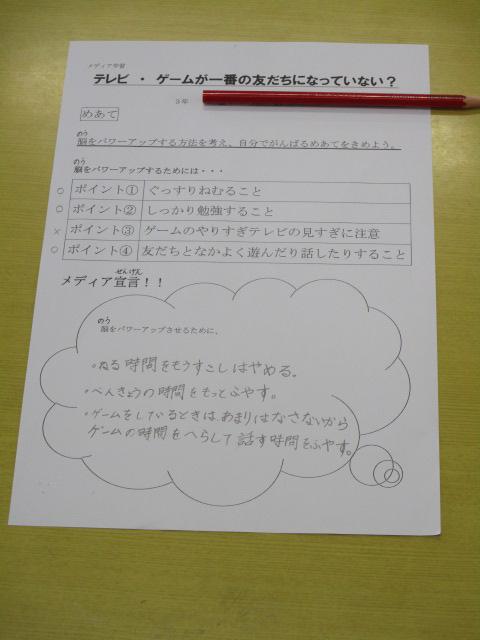 メディア学習
テレビ ・ ゲームが一番の友だちになっていない？
3年
めあて
のう
脳をパワーアップする方法を考え、自分でがんばるめあてをきめよう。
のう
脳をパワーアップするためには・・・
○ ポイント① ぐっすりねむること
○ ポイント② しっかり勉強すること
× ポイント③ ゲームのやりすぎテレビの見すぎに注意
○ ポイント④ 友だちとなかよく遊んだり話したりすること
せんげん
メディア宣言！！
のう
脳をパワーアップさせるために、
・ねる時間をもうすこしはやめる。
・べんきょうの時間をもっとふやす。
・ゲームをしているときは、あまりはなさないから
ゲームの時間をへらして話す時間をふやす。